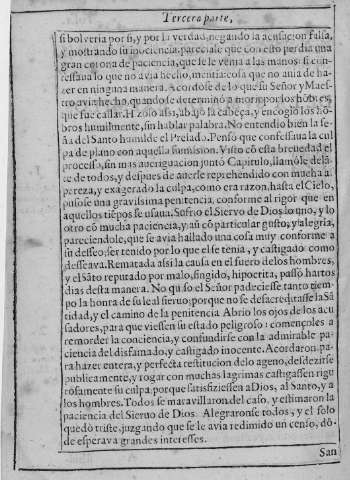 Tercera parte,
si bolveria por si, y por la verdad, negando la acusacion falsa,
y mostrando su inocencia, pareciale que con esto perdia una
gran corona de paciencia, que se le venia a las manos: si con-
fessaua lo que no avia hecho, mentia: cosa que no auia de ha-
zer en ninguna manera. Acordose de lo que su Señor y Maes-
tro avia hecho, quando se determinò a morir por los hõbres,
que fue callar. Hizolo assi, abaxò la cabeça, y encogiò los hõ-
bros humilmente, sin hablar palabra. No entendio bien la se-
ña del Santo humilde el Prelado. Pensò que confessaua la cul
pa de plano con aquella sumision. Visto cõ esta breuedad el
processo, sin mas auerriguacion juntò Capitulo, llamóle delã-
te de todos, y despues de auerle reprehendido con mucha as
pereza, y exagerado la culpa, como era razon, hasta el Cielo,
pusose una gravissima penitencia, conforme al rigor que en
aquellos tiẽpos se usaua. Sufrio el Siervo de Dios lo uno, y lo
otro cõ mucha paciencia, y aũ cõ particular gusto, y alegria,
pareciendole, que se avia hallado una cosa muy conforme a
su desseo, ser tenido por lo que el se tenia, y castigado como
desseava. Rematada assi la causa en el fuero de los hombres,
y el Sãto reputado por malo, fingido, hipocrita, passò hartos
dias desta manera. No quiso el Señor padeciesse tanto tiem-
po la honra de su leal siervo; porque no se desacreditasse la Sã
tidad, y el camino de la penitencia Abrio los ojos de los acu
sadores, para que viessen su estado peligroso: començoles a
remorder la conciencia, y confundirse con la admirable pa-
ciencia del disfamado, y castigado inocente. Acordaron pa-
ra hazer entera, y perfecta restitucion de lo ageno, desdezirse
publicamente, y rogar con muchas lagrimas castigassen rigu
rosamente su culpa: porque satisfiziessen a Dios, al Santo, y a
los hombres. Todos se maravillaron del caso, y estimaron la
paciencia del Siervo de Dios. Alegraronse todos, y el solo
quedò triste, juzgando que se le avia redimido un censo, dõ-
de esperava grandes interesses.
San